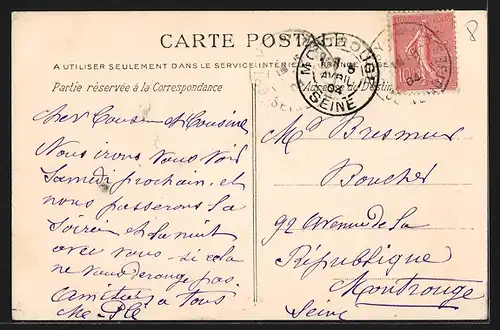 CARTE POSTALE
A UTILISER SEULEMENT DANS LE SERVICE INTÉRIEUR
Partie réservée à la Correspondance
Adresse du Destin
cher Cousin et Cousine
Nous irons vous voir
Samedi prochain et
nous passerons la
Soirée et la nuit
avec vous si cela
ne vous dérange pas
Amitiés à tous
Md Bresmer
Boucher
92 Avenue de la
République
Montrouge
Seine
MONTROUGE
AVRIL
04
SEINE
10
8